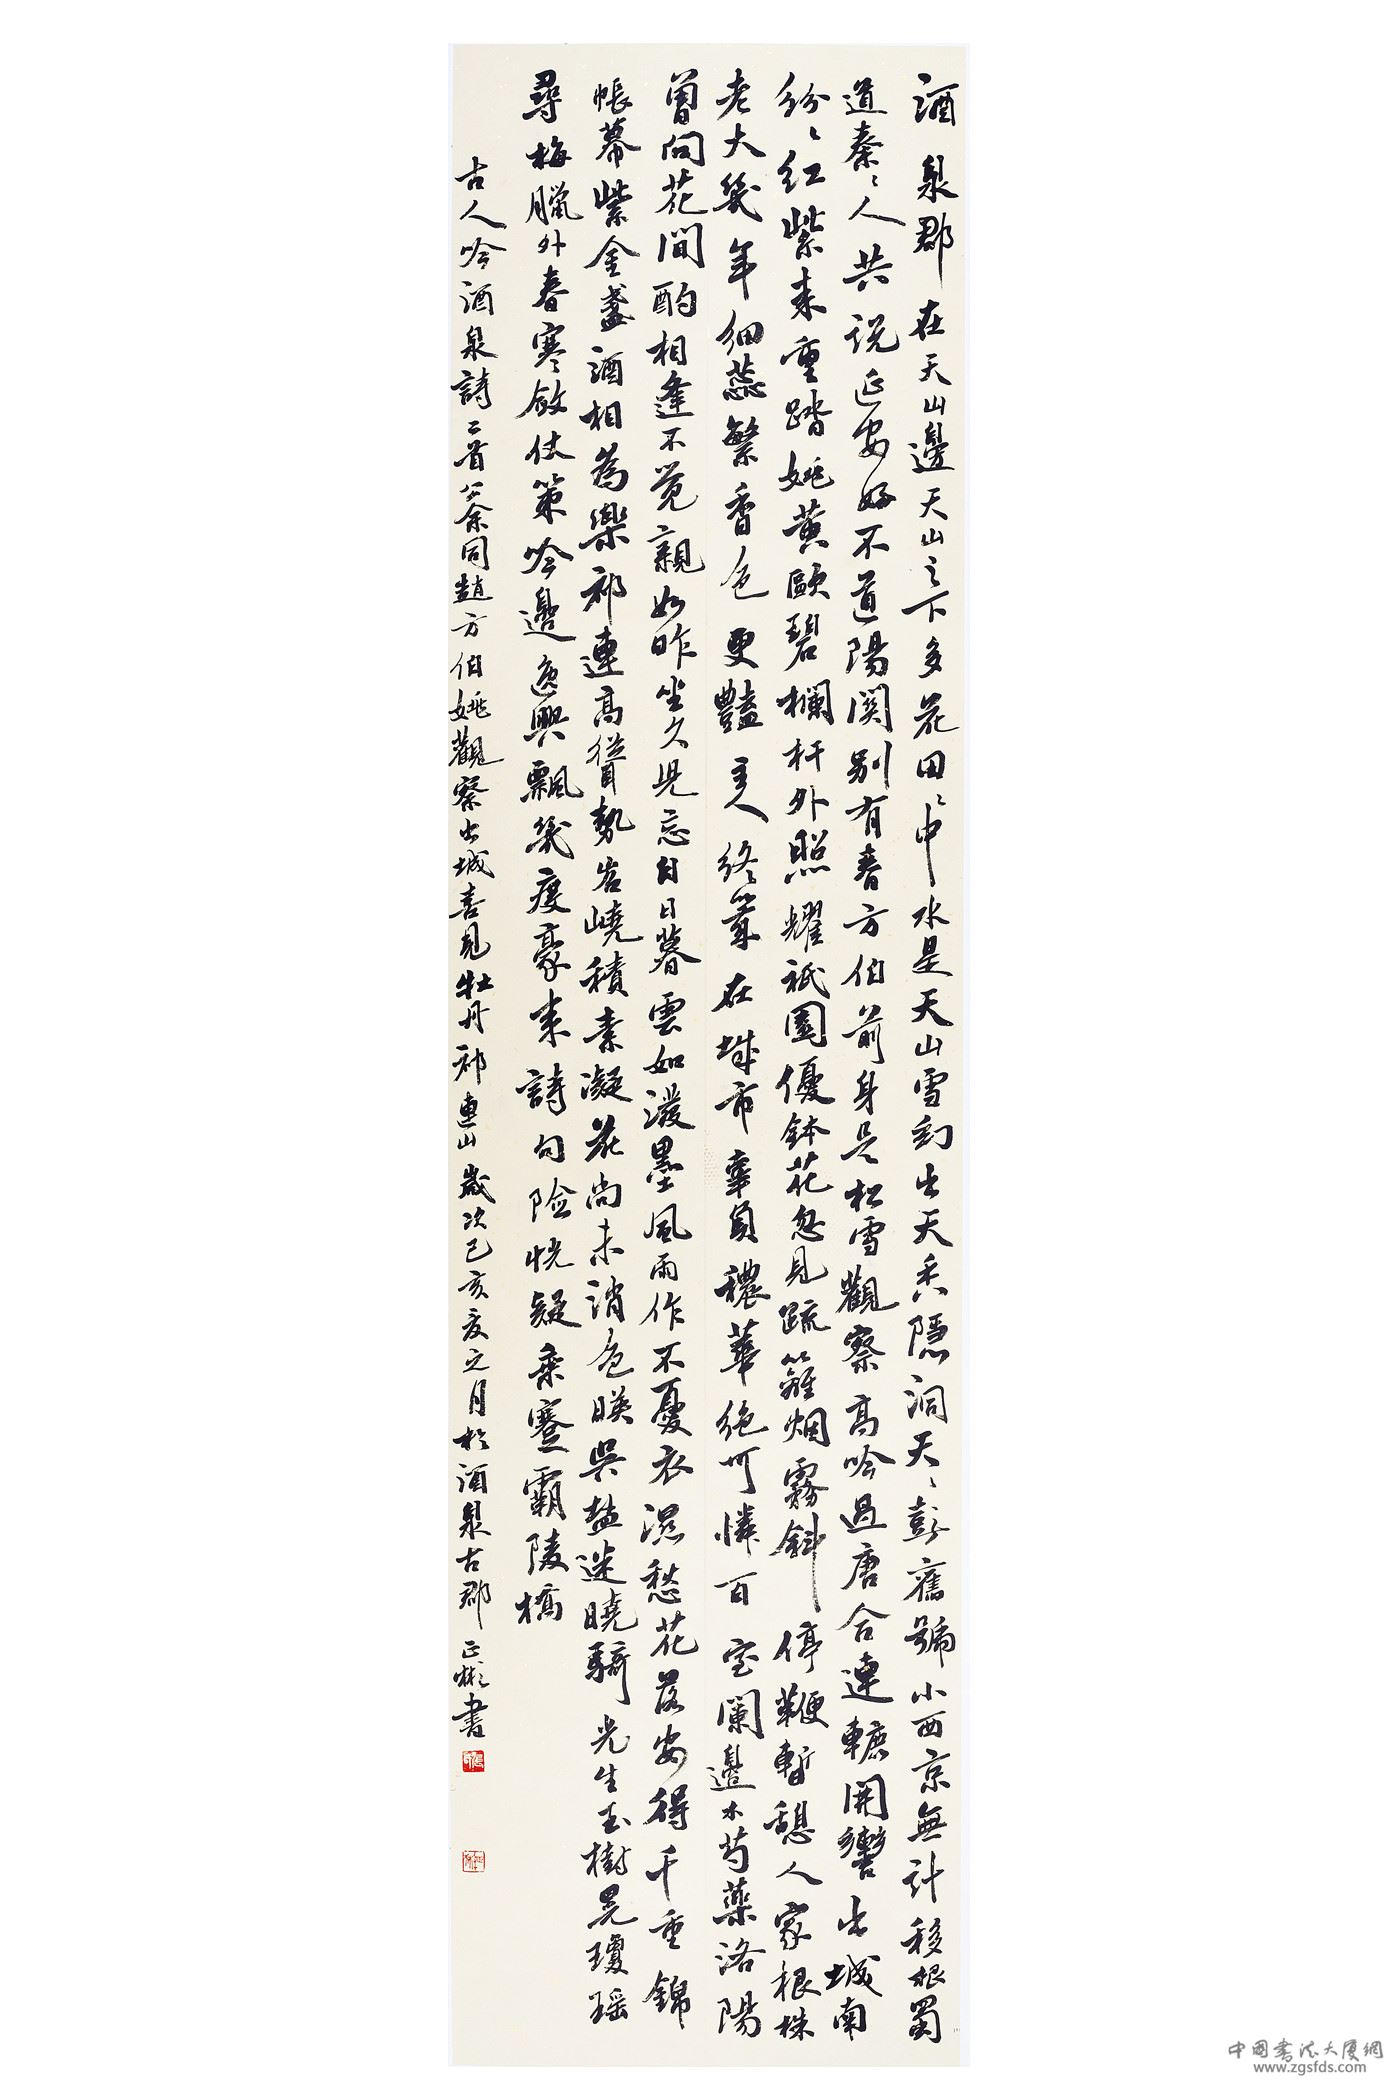 酒泉郡在天山邊天山之下多花田〻中水是天山雪幻出天香隱洞天〻彭舊號小西京無計移根蜀
道秦〻人共说延安好不道陽関别有春方伯前身是松雪觀察高吟過唐合連轡出城南
纷〻红紫来重踏姚黄歐碧欄杆外照耀祇園優鉢花忽見疏籬烟霧斜停鞭暫憩人家根株
老大幾年细蕊繁香色更豔主人终嵗在城市辜負穠華绝可憐百宝闌邊木芍藥洛陽
曾问花間酌相逢不觉親如昨坐久児忘日暮雲如潑墨風雨作不憂衣濕愁花落安得千重錦
帳幕紫金盞酒相為樂祁連高聳勢岧嶢積素凝花尚未消色暎吴盐迷曉騎光生玉樹晃瓊瑶
尋梅臘外春寒斂仗策吟邊逸興飄幾度豪来詩句险恍疑乘蹇霸陵橋
古人吟酒泉詩二首秦同趙方伯姚觀察出城喜見牡丹祁連山歲次己亥夏之月於酒泉古郡正彬書
中国书法大厦網
www.zgsfds.com